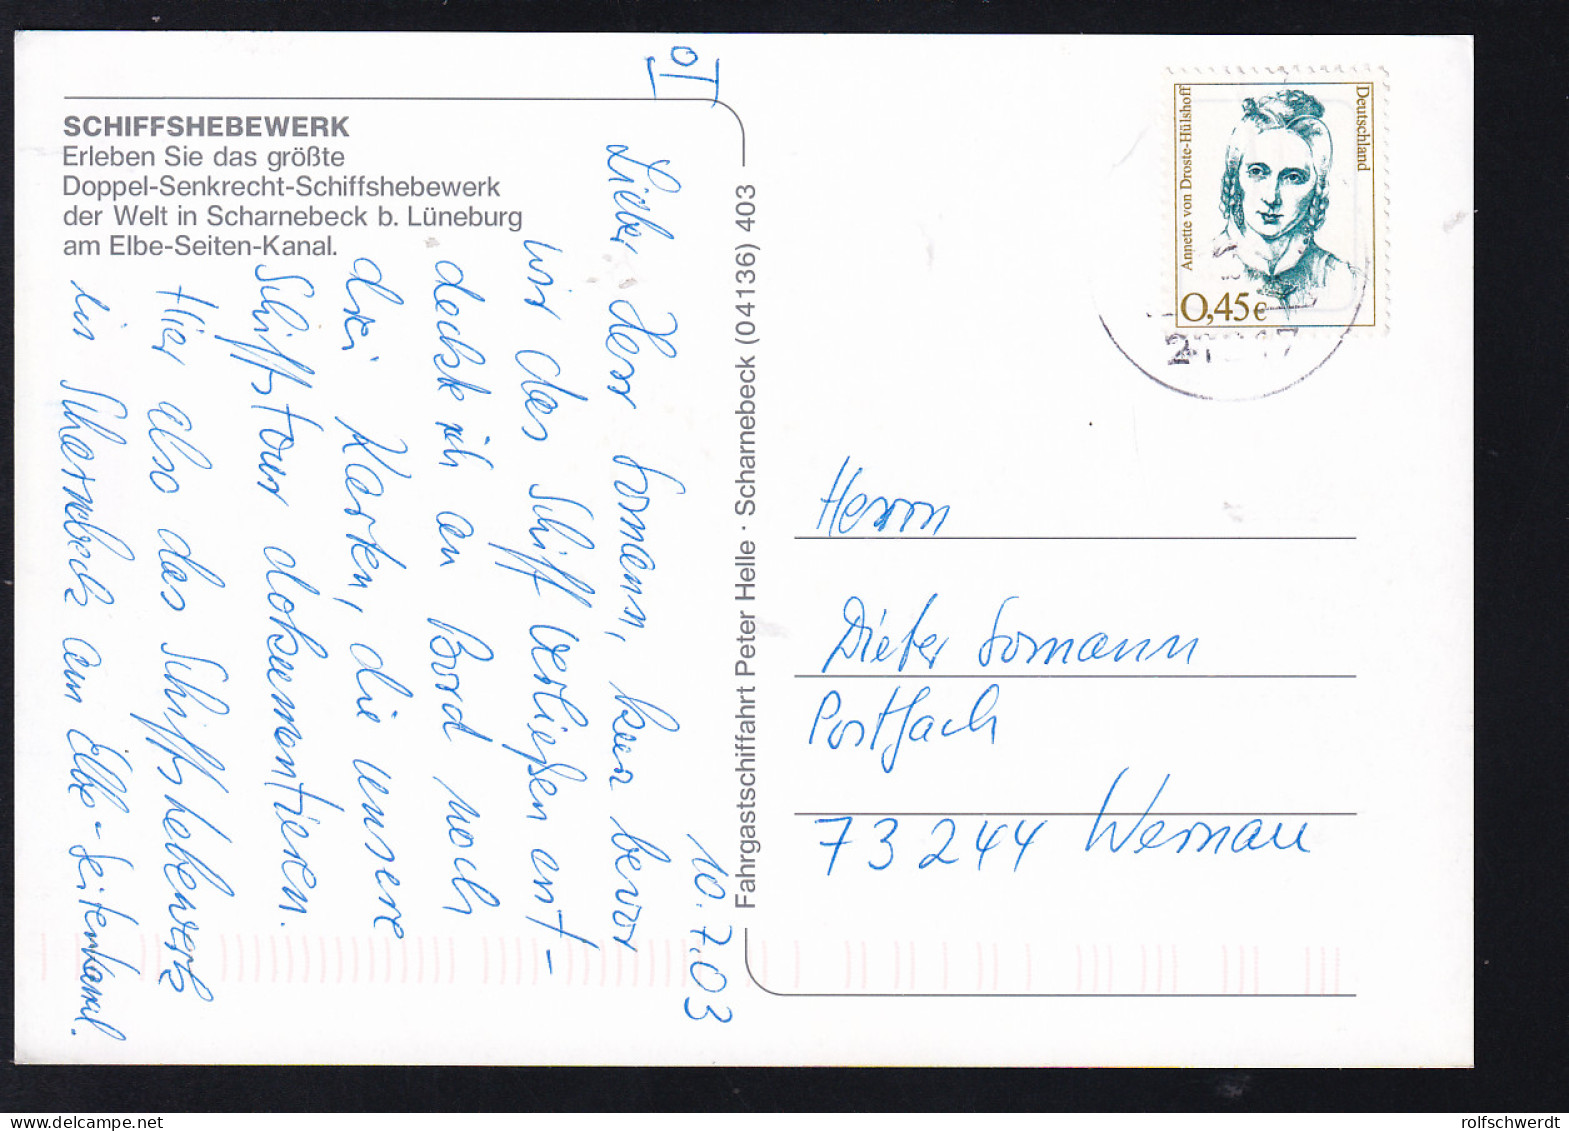 SCHIFFSHEBEWERK
Erleben Sie das größte
Doppel-Senkrecht-Schiffshebewerk
der Welt in Scharnebeck b. Lüneburg
am Elbe-Seiten-Kanal.
10.7.03
Lieber Herr Somann, kurz bevor
wir das Schiff verließen ent-
deckte ich an Bord noch
drei Karten, die unsere
Schiffstour dokumentieren.
Hier also das Schiffshebewerk
in Scharnebeck am Elbe-Seitenkanal.
Fahrgastschiffahrt Peter Helle · Scharnebeck (04136) 403
Deutschland
Annette von Droste-Hülshoff
0,45€
Herrn
Dieter Somann
Postfach
73244 Wernau
www.delcampe.net
rolfschwerdt